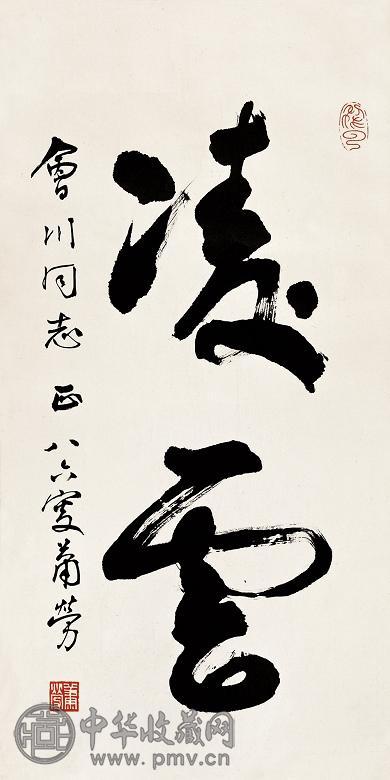 凌雲
會川同志 正 八六叟蕭勞
蕭勞
中华收藏网
www.pmv.cn